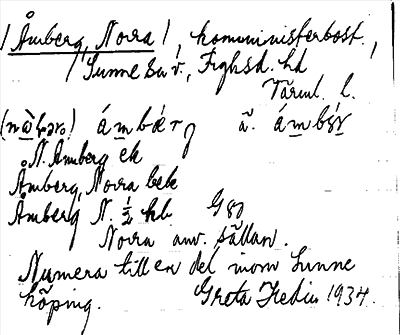 /Åmberg, Norra/, komministerbost.,
/Sunne sn, Frykd. hd
Värml. l.
(nə̀rə) ámbær̨ ä. ámbər̨
N. Åmberg ek
Åmberg, Norra bek
Åmberg N. ½ hl G80
Norra anv. sällan.
Numera till en del inom Sunne
köping. Greta Hedin 1934.